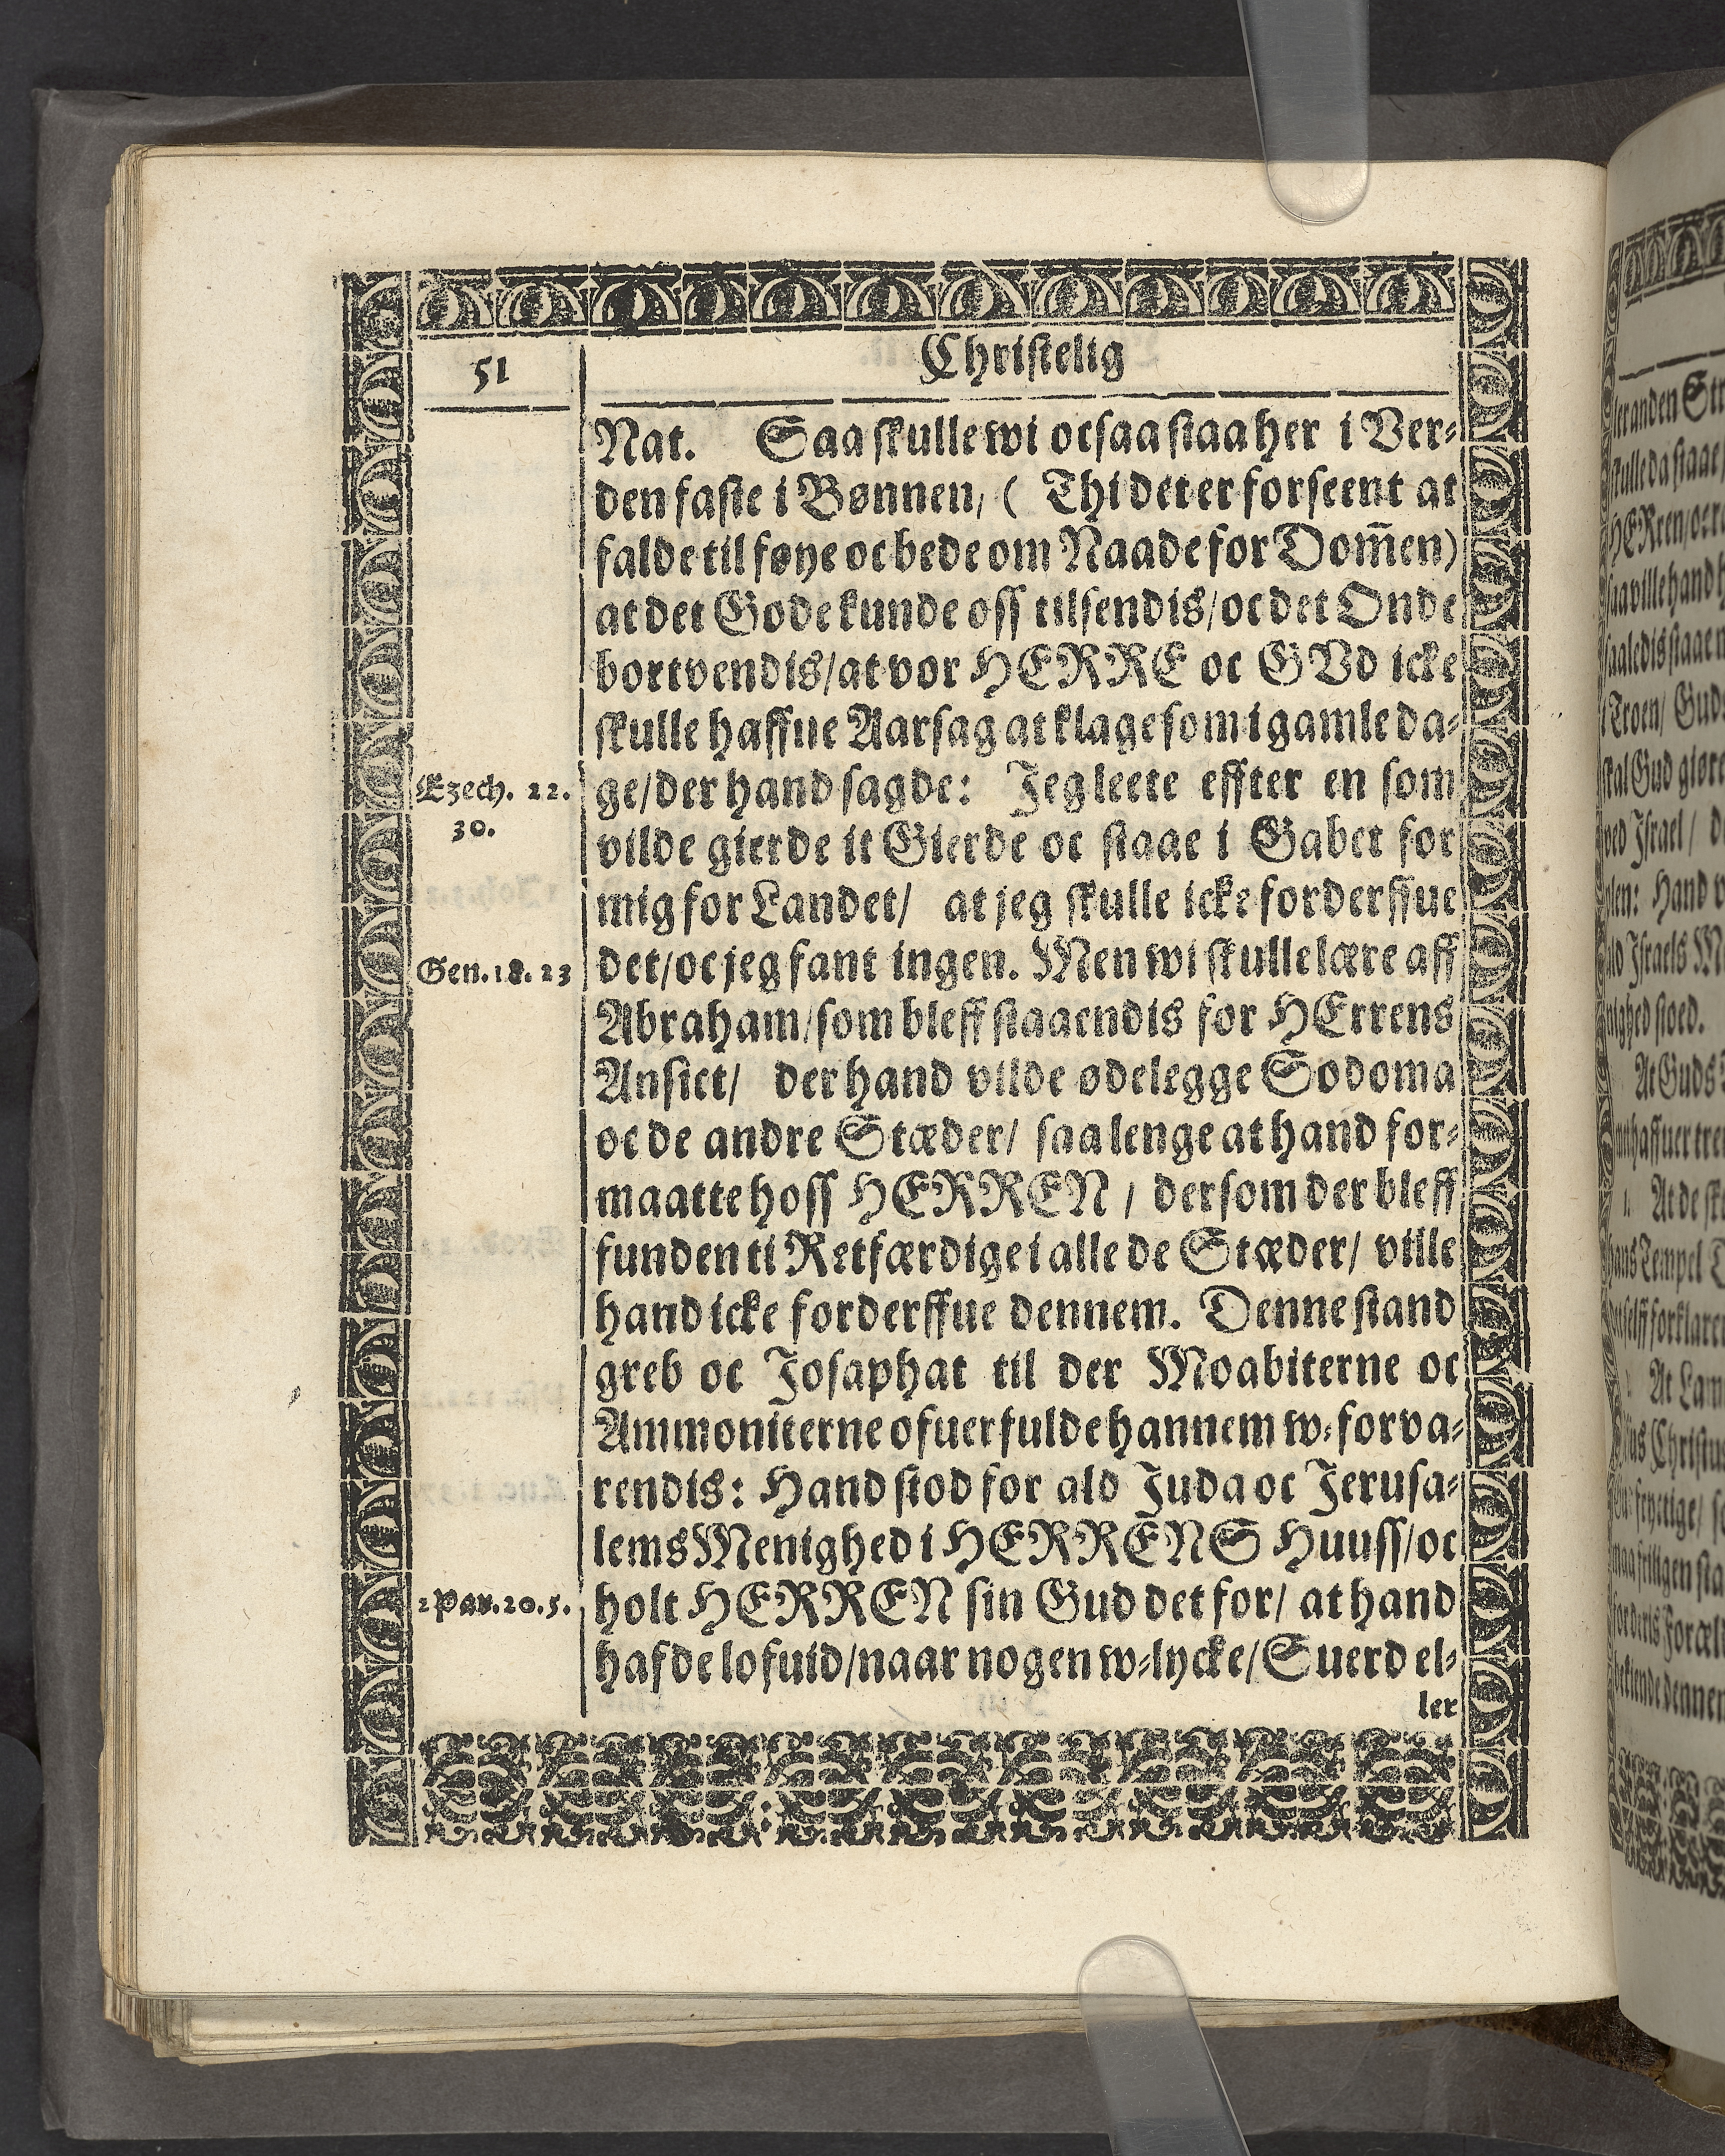 51
Christelig
Nat. Saa skulle wi ocsaa staa her i Ver-
den faste i Bønnen/ ( Thi det er for seent at
falde til føye oc bede om Naade for Dom̄en)
at det Gode kunde oss tilsendis/ oc det Onde
bortvendis/ at vor HERRE oc GVd icke
skulle haffue Aarsag at klage som i gamle da-
Ezech. 22.
30.
ge/ der hand sagde: Jeg leete effter en som
vilde gierde it Gierde oc staae i Gabet for
mig for Landet/ at jeg skulle icke forderffue
Gen. 18. 23
det/ oc jeg fant ingen. Men wi skulle lære aff
Abraham/ som bleff staaendis for HErrens
Ansict/ der hand vilde ødelegge Sodoma
oc de andre Stæder/ saa lenge at hand for-
maatte hoss HERREN / dersom der bleff
funden ti Retfærdige i alle de Stæder/ ville
hand icke forderffue dennem. Denne stand
greb oc Josaphat til der Moabiterne oc
Ammoniterne ofuerfulde hannem w-forva-
rendis: Hand stod for ald Juda oc Jerusa-
lems Menighed i HERRENS Huuss/ oc
2 Par. 20. 5.
holt HERREN sin Gud det for/ at hand
hafde lofuid/ naar nogen w-lycke/ Suerd el-
ler